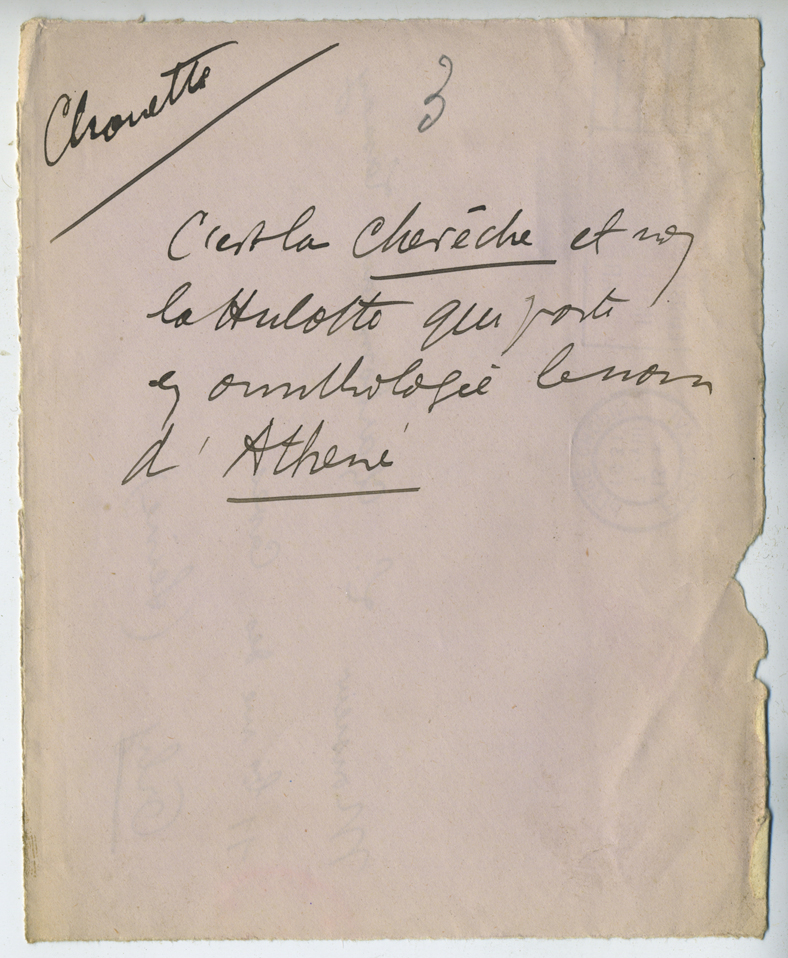 Chouette
3
C'est la Chevêche et non
la Hulotte qui porte
en ornithologie le nom
d'Athené